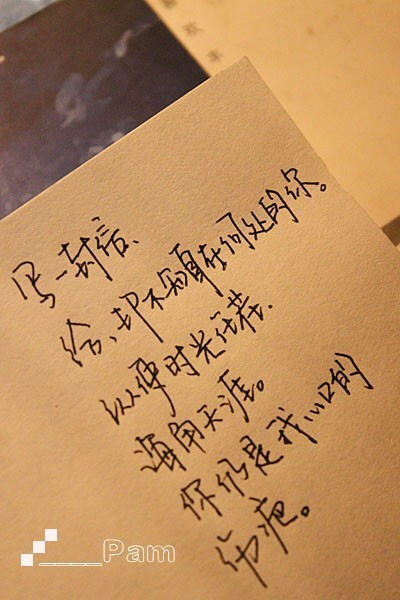 写一封信、
给、却不知身在何处的你。
纵使时光荏苒、
海角天涯。
你仍是我心口的
伤疤。
____Pam